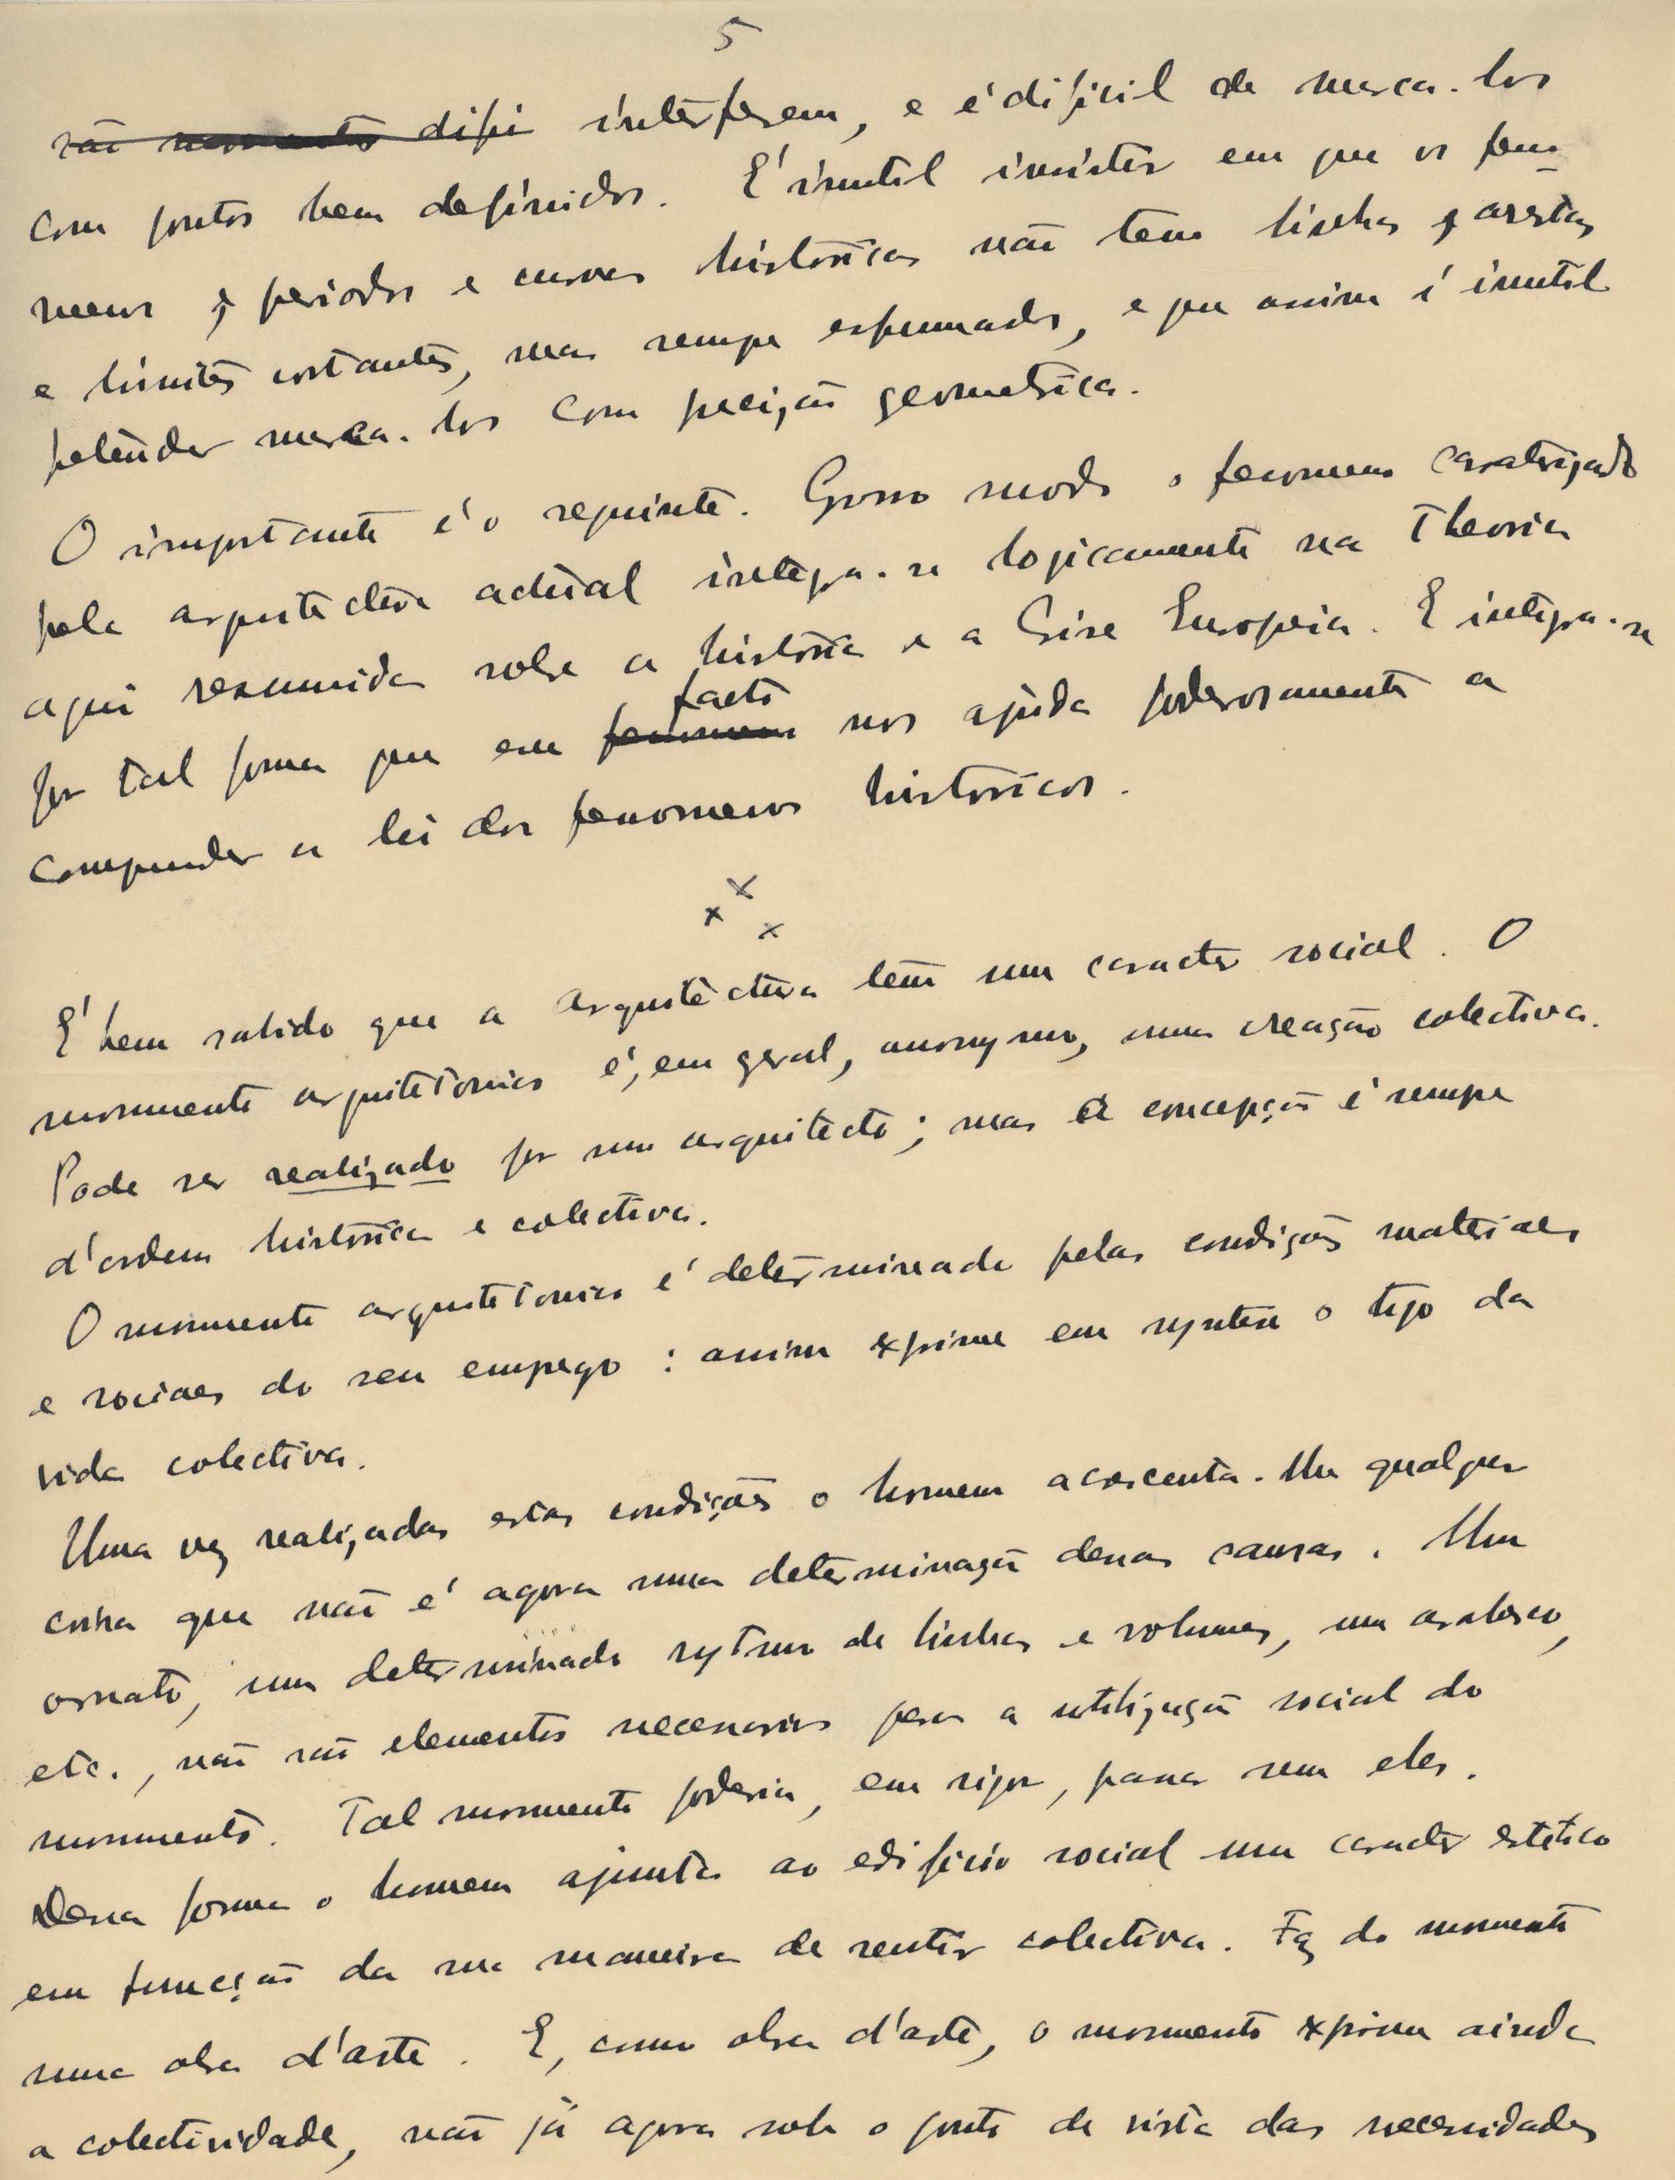 5
são momentos difi interferem, e é dificil de merca-los
com pontos bem definidos. É inutil insistir em que os feno-
menos, periodos e curvas historicas não tem linhas, arestas
e limites cortantes, mas sempre esfumados, e que assim é inutil
pretender merca-los com precizão geometrica.
O importante é o seguinte. Grosso modo o fenomeno caratrizado
pela arquitectura actual integra-se logicamente na Theoria
aqui resumida sobre a historia e a Crise Europeia. E integra-se
facto
por tal forma que em fenomeno nos ajuda poderosamente a
compreender a lei dos fenomenos historicos.
x x x
É bem sabido que a Arquitectura tem um caracter social. O
monumento arquitetonico é, em geral, anonymo, uma creação colectiva.
Pode ser realizado por um arquitecto; mas a concepção é sempre
d'ordem historica e colectiva.
O monumento arquitetonico é determinado pelas condições materiaes
e sociaes do seu emprego: assim exprime em syntese o tipo da
vida colectiva.
Uma vez realizadas estas condições o homem acrescenta-lhe qualquer
coisa que não é agora uma determinação dessas causas. Um
ornato, um determinado rytmo de linhas e volumes, um arabesco,
etc., não são elementos necessarios para a utilização social do
monumento. Tal monumento poderia, em rigor, passar sem eles.
Dessa forma o homem ajunta ao edificio social um caracter estetico
em funcção da sua maneira de sentir colectiva. Faz do monumento
uma obra d'arte. E, como obra d'arte, o monumento exprime ainda
a colectividade, não já agora sob o ponto de vista das necessidades